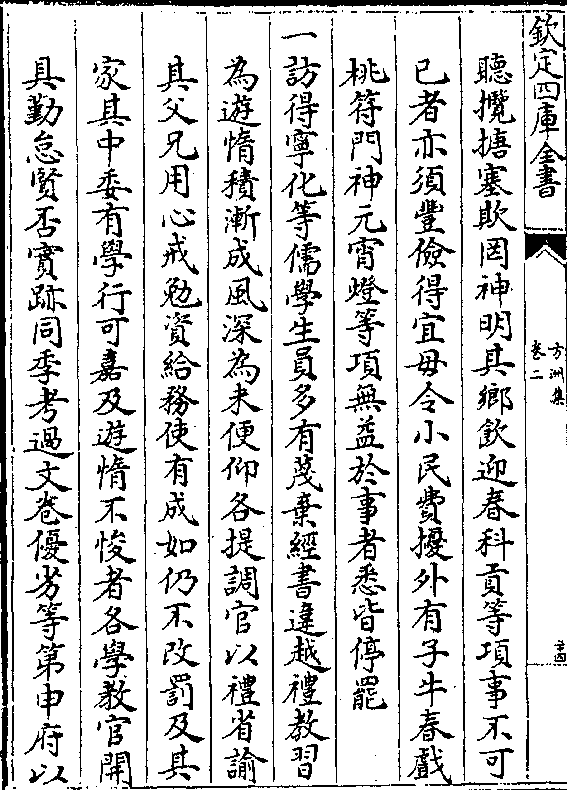 欽定四庫全書
方洲集
卷二
聽攬搪塞欺罔神明其鄉飲迎春科貢等項事不可
已者亦須豐儉得宜毋令小民費擾外有子牛春戲
桃符門神元宵燈等項無益於事者悉皆停罷
一訪得寧化等儒學生員多有蔑棄經書違越禮教習
為遊惰積漸成風深為未便仰各提調官以禮省諭
其父兄用心戒勉資給務使有成如仍不改罰及其
家其中委有學行可嘉及遊惰不悛者各學教官開
具勤怠賢否實跡同季考過文卷優劣等第申府以